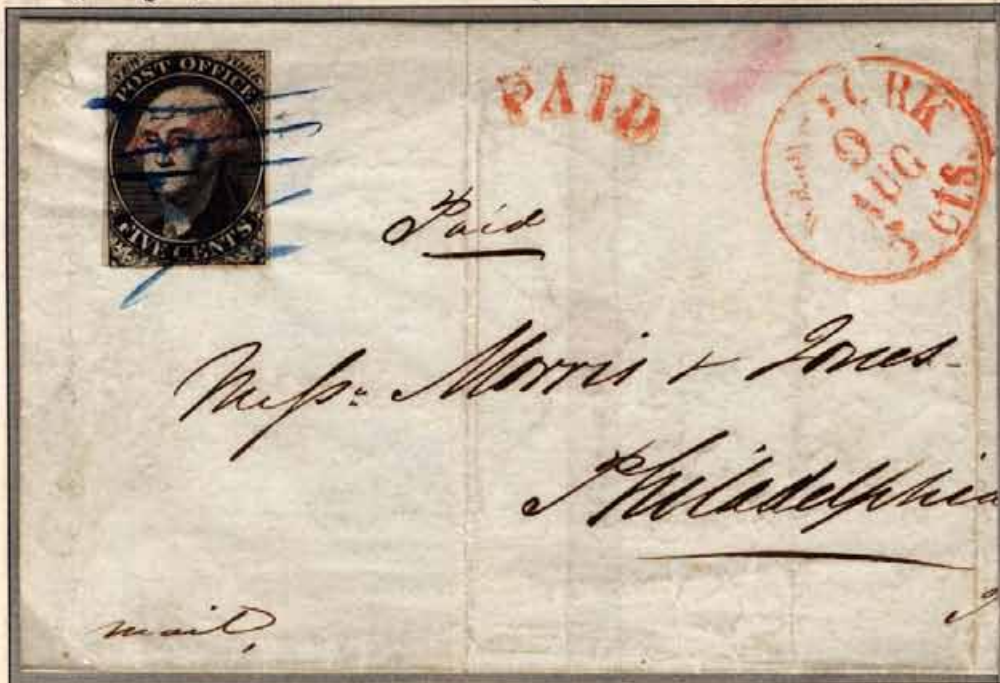 POST OFFICE
FIVE CENTS
PAID
YORK
9
AUG
5 cts.
Paid
Messrs: Morris & Jones
Philadelphia
mail,